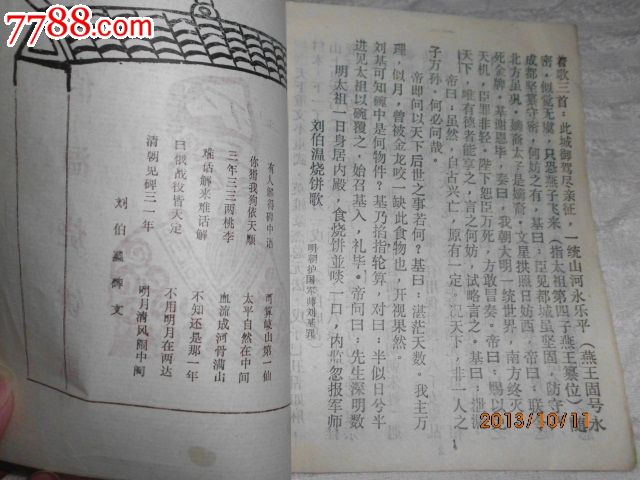 刘伯温碑文
清朝见碑三一年 明月清风闹中阁
日俄战役皆天定 不用明月在两达
难话解来难话解 不知还是那一年
三年三三两桃李 血流成河骨满山
你猜我狗依天顺 太平自然在中间
有人解得碑中语 第一仙
刘伯温烧饼歌
明朝护国军师刘基撰
明太祖一日身居内殿，食烧饼並啖一口，内监忽报军师
进见太祖以碗覆之，始召基入，礼毕。帝问曰：先生深明数
理，似月，曾被金龙咬一缺此食物也，开视果然。
刘基可知碗中是何物件？基乃掐指轮算，对曰：半似日兮半
帝即问以天下后世之事若何？基曰：湛茫天数。我主万
子万孙，何必问哉。
帝曰：虽然，自古兴亡，原有一定。况天下，非一人之
天下，惟有德者能享之，言之何妨，试略言之。基曰：泄漏
天机，臣罪非轻。陛下恕臣万死，方敢冒奏。帝曰：赐以免
死金牌，基谢恩毕，奏曰：我朝大明一统世界，南方终灭
北方虽巩，嫡裔太子是嫡裔。文星拱照日妨西，帝曰：朕今
成都坚 守密，何妨之有，基曰：臣见都城虽坚固，防守
密，似觉无虞，只恐燕子飞来（指太祖第四子燕王篡位）随
着歌三首：此城御驾尽亲征，一统山河永乐平（燕王固号永
2
7788.com
2013/10/11